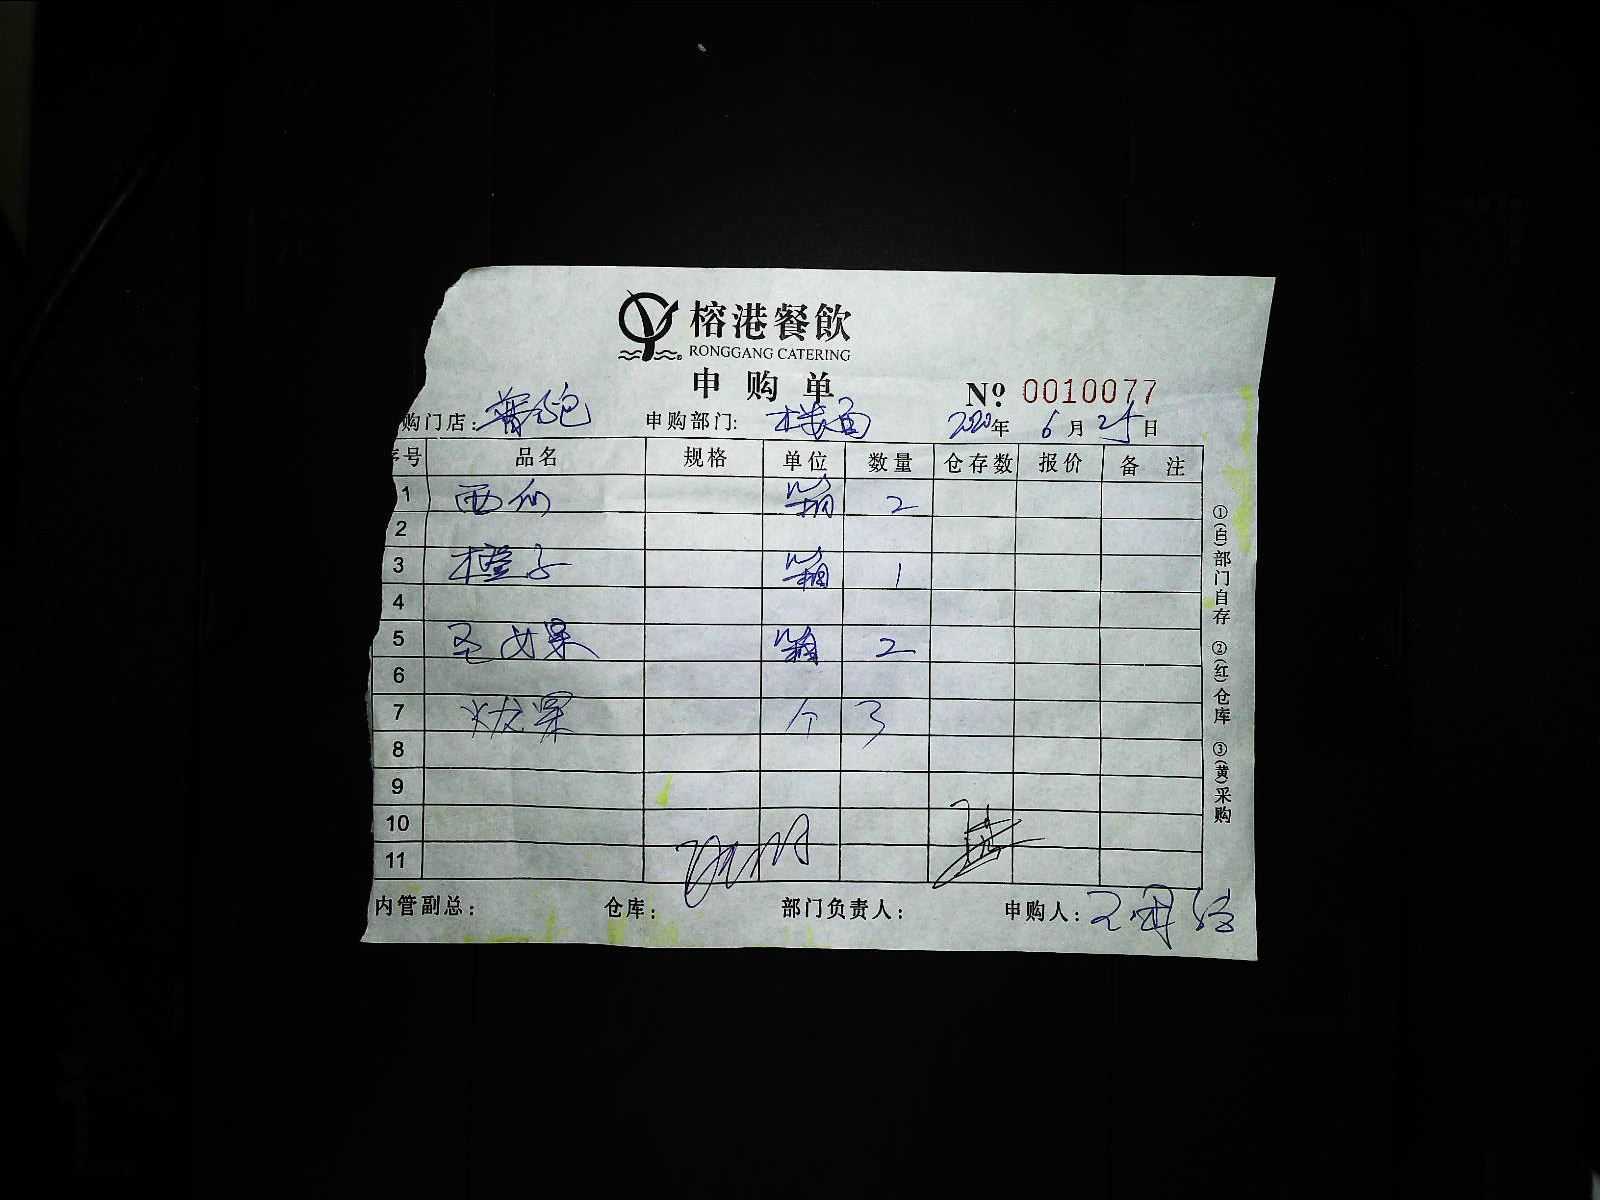 榕港餐飲
RONGGANG CATERING
申购单
№ 0010077
购门店: 申购部门: 楼面 2020年 6月25日
序号 品名 规格 单位 数量 仓存数 报价 备注
1 西仙 箱 2
2
3 橙子 箱 1
4
5 圣女果 箱 2
6
7 火龙果 个 3
8
9
10
11
内管副总: 仓库: 部门负责人: 申购人:
①(白)部门自存 ②(红)仓库 ③(黄)采购